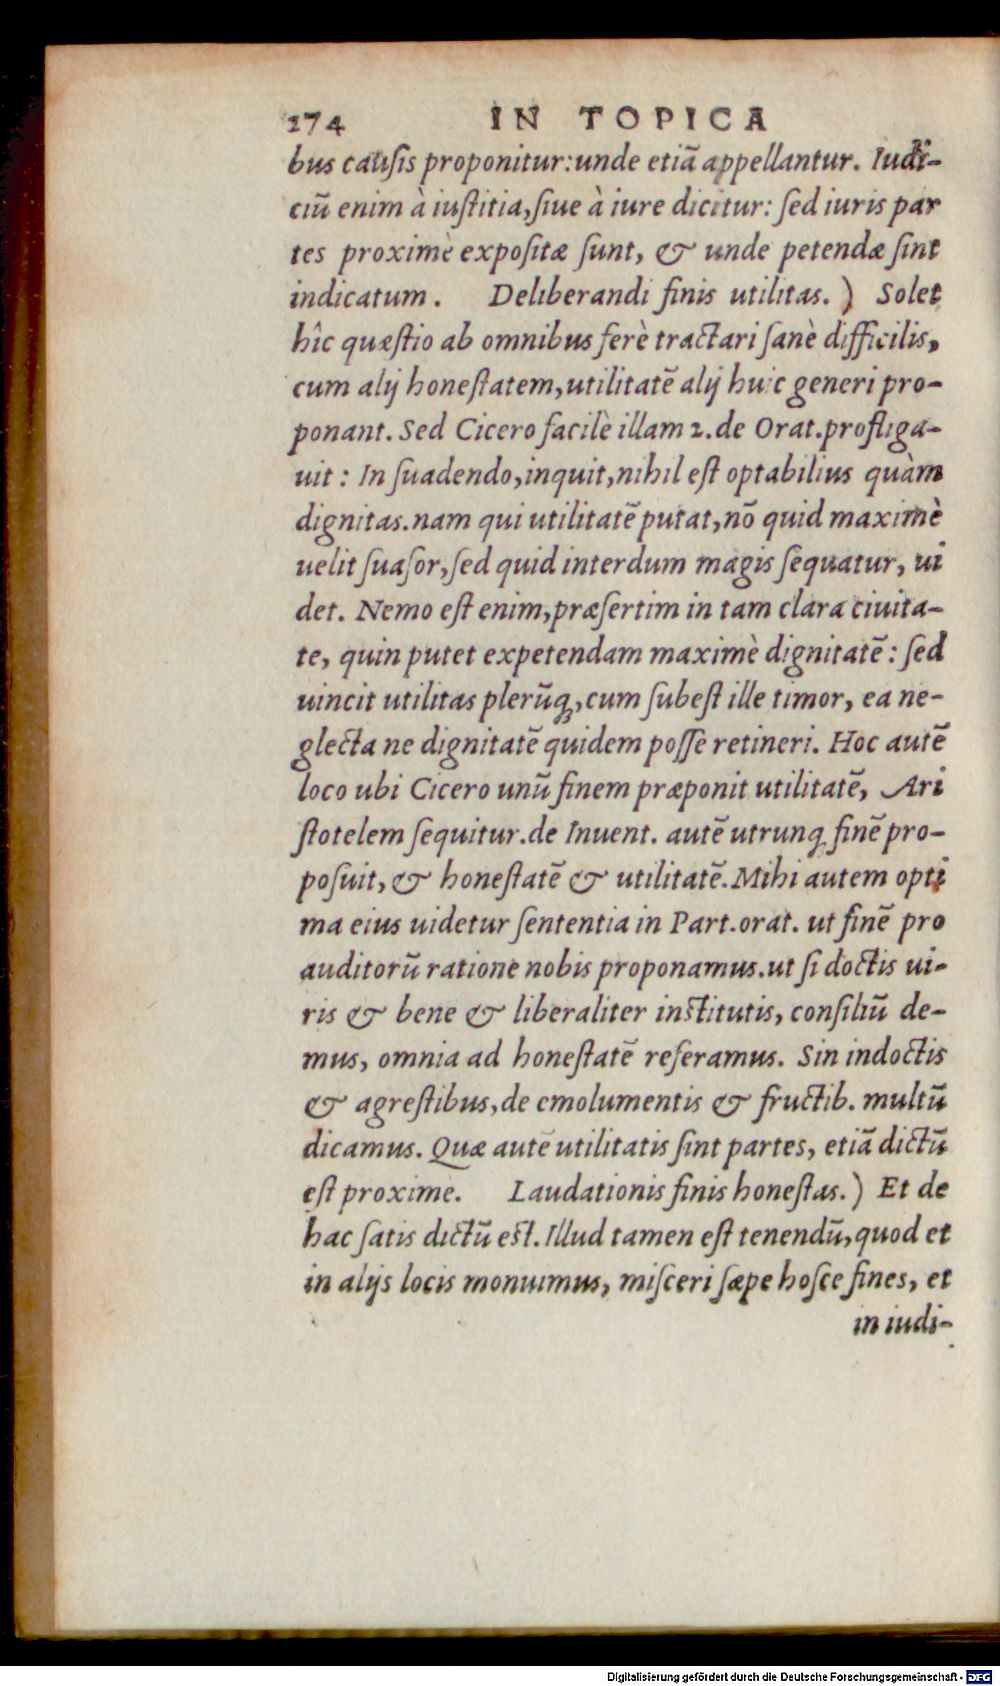 174 IN TOPICA
bus causis proponitur:unde etiā appellantur. Iudi-
ciū enim à iuſtitia,ſiue à iure dicitur: ſed iuris par
tes proximè expoſitæ ſunt, & unde petendæ ſint
indicatum. Deliberandi finis utilitas. ) Solet
hîc quæſtio ab omnibus ferè tractari ſanè difficilis,
cum alij honeſtatem,utilitatē alij huic generi pro-
ponant. Sed Cicero facilè illam 2.de Orat.profliga-
uit : In ſuadendo,inquit,nihil eſt optabilius quàm
dignitas.nam qui utilitatē putat,nō quid maximè
uelit ſuaſor,ſed quid interdum magis ſequatur, ui
det. Nemo eſt enim,præſertim in tam clara ciuita-
te, quin putet expetendam maximè dignitatē : ſed
uincit utilitas plerūq;,cum ſubeſt ille timor, ea ne-
glecta ne dignitatē quidem poſſe retineri. Hoc autē
loco ubi Cicero unū finem præponit utilitatē, Ari
ſtotelem ſequitur.de Inuent. autē utrunq; finē pro-
poſuit, & honeſtatē & utilitatē.Mihi autem opti
ma eius uidetur ſententia in Part.orat. ut finē pro
auditorū ratione nobis proponamus.ut ſi doctis ui-
ris & bene & liberaliter inſtitutis, conſiliū de-
mus, omnia ad honeſtatē referamus. Sin indoctis
& agreſtibus,de emolumentis & fructib. multū
dicamus. Quæ autē utilitatis ſint partes, etiā dictū
eſt proxime. Laudationis finis honeſtas. ) Et de
hac ſatis dictū eſt.Illud tamen eſt tenendū,quod et
in alijs locis monuimus, miſceri ſæpe hoſce fines, et
in iudi-
Digitalisierung gefördert durch die Deutsche Forschungsgemeinschaft - DFG